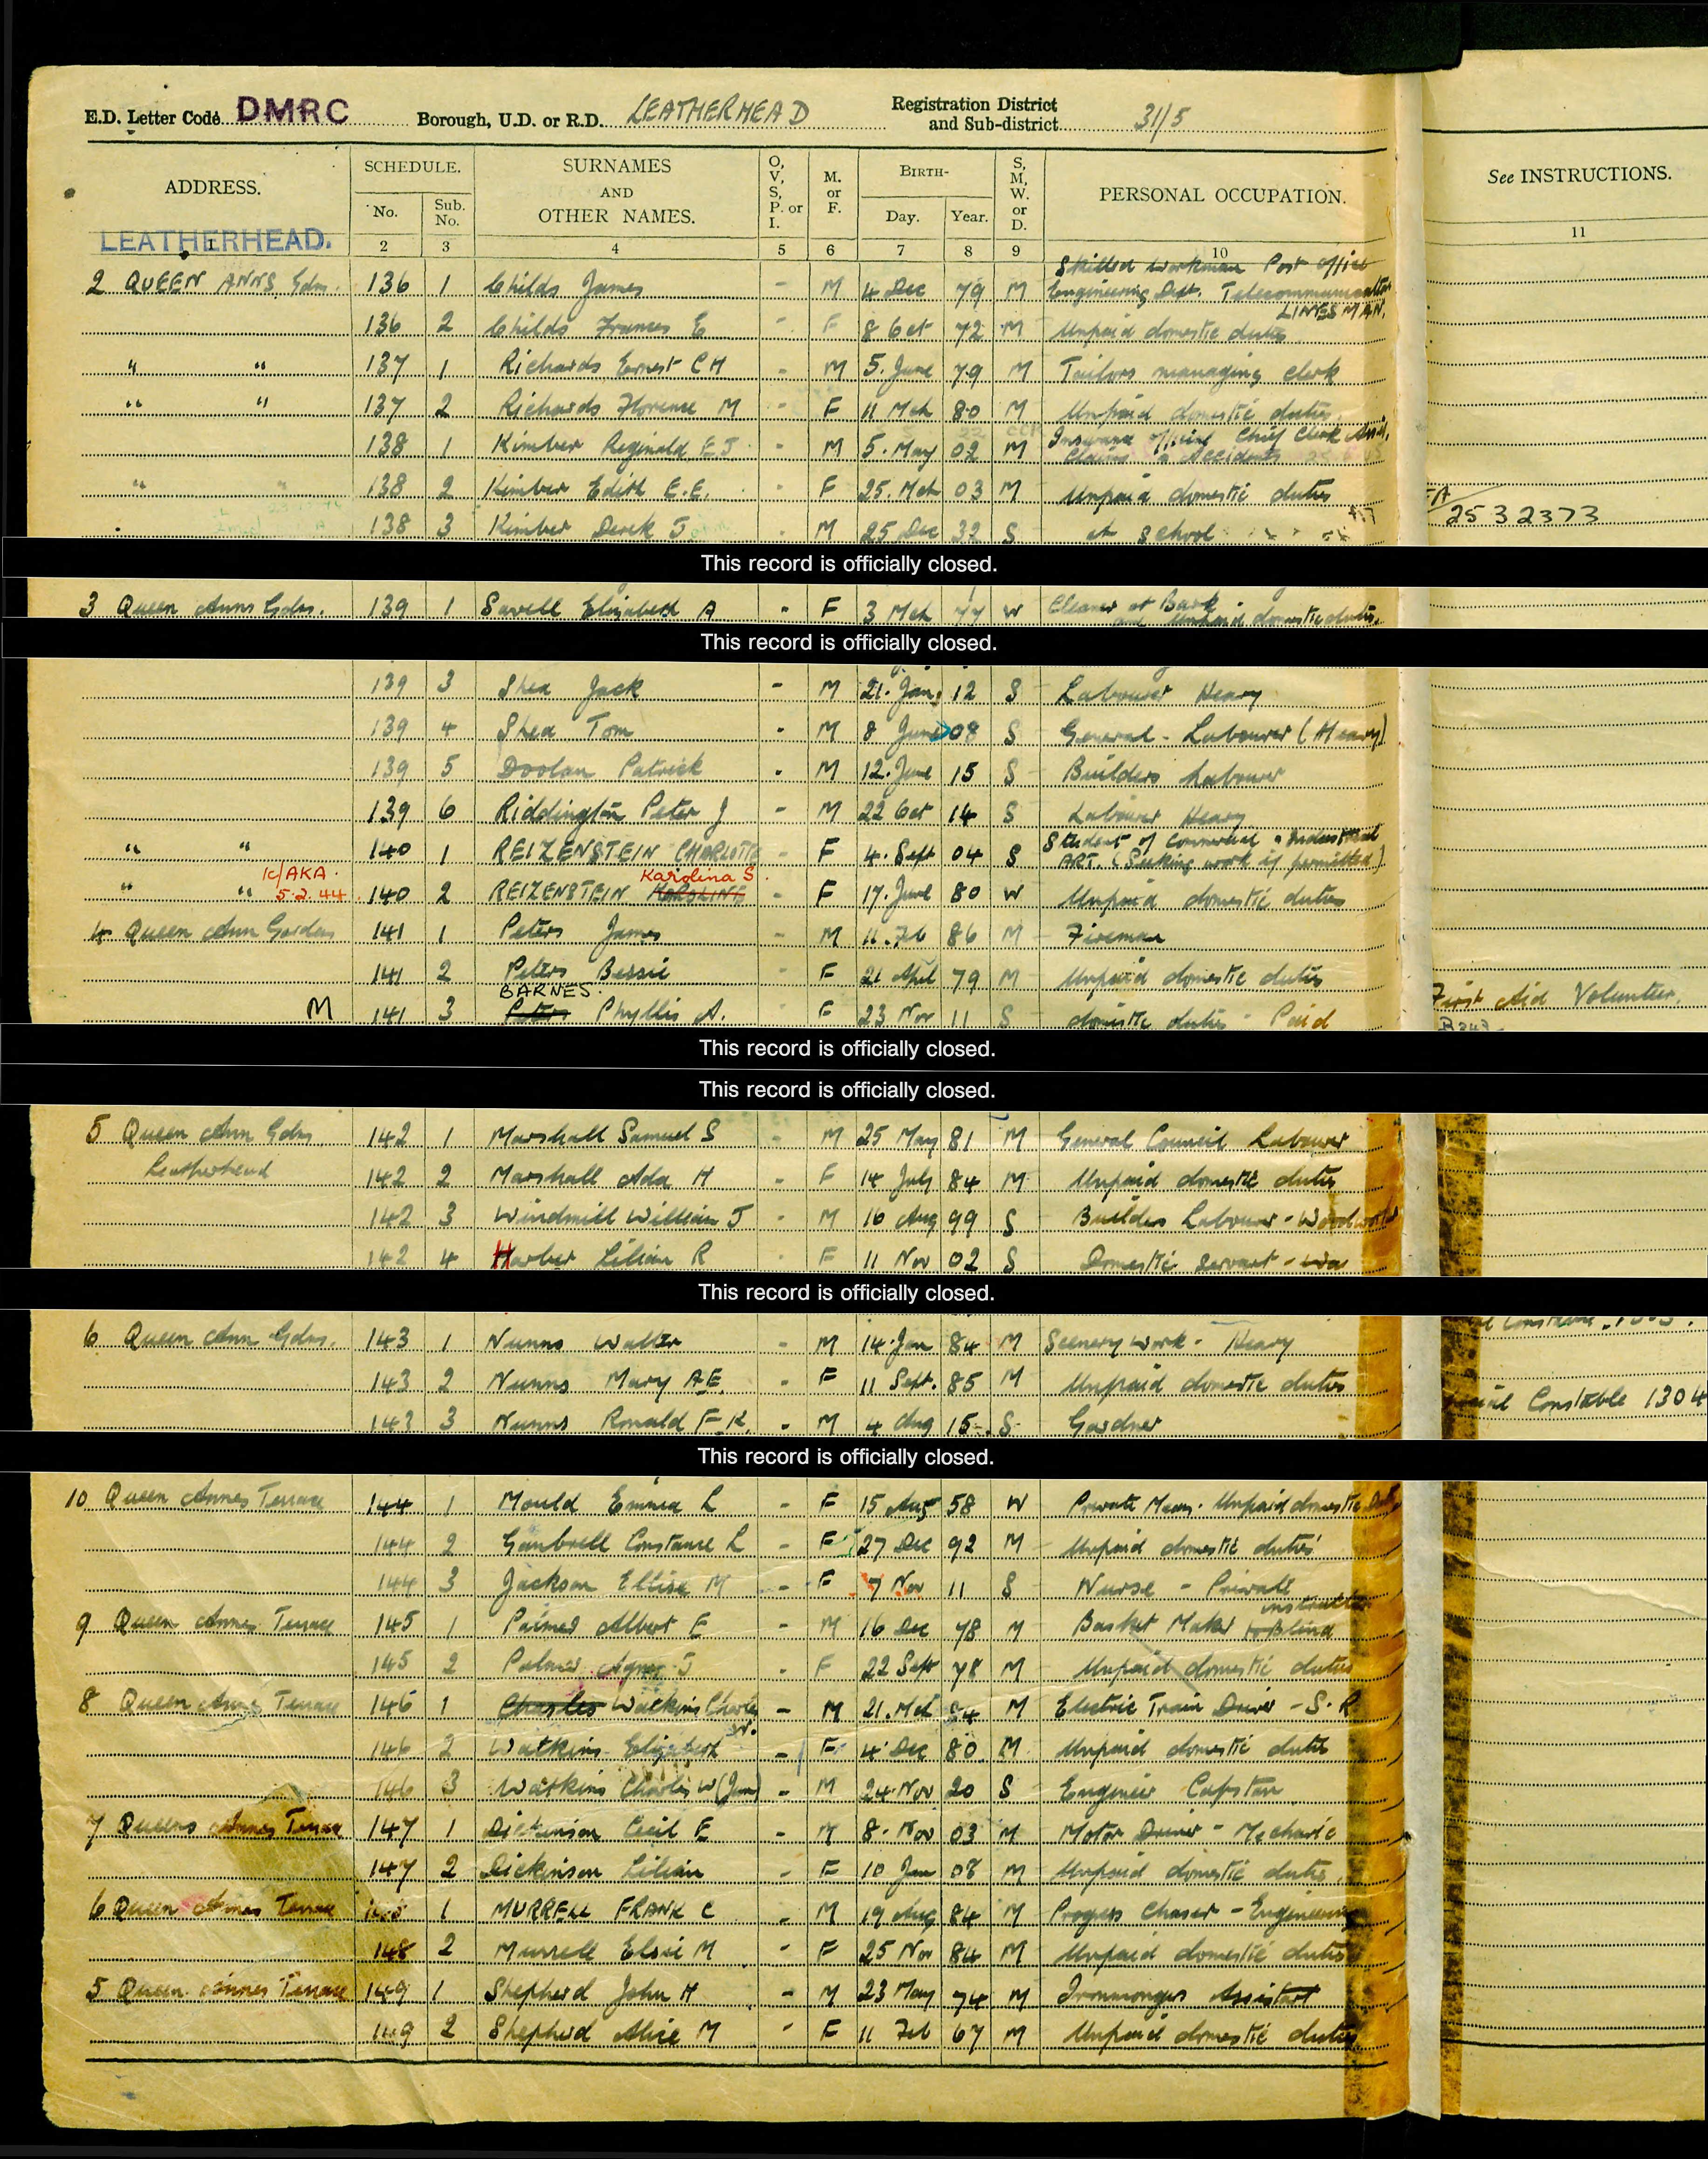 E.D. Letter Code DMRC Borough, U.D. or R.D. LEATHERHEAD Registration District and Sub-district 31/5
ADDRESS. SCHEDULE. No. Sub. No. SURNAMES AND OTHER NAMES. O, V, S, P. or I. M. or F. BIRTH- Day. Year. S, M, W. or D. PERSONAL OCCUPATION. See INSTRUCTIONS.
LEATHERHEAD.
1 2 3 4 5 6 7 8 9 10 11
Skilled Workman Post Office
2 QUEEN ANNS Gdns. 136 1 Childs James - M 4 Dec 79 M Engineering Dept. Telecommunication
LINESMAN.
136 2 Childs Frances E - F 8 Oct 72 M Unpaid domestic duties
" " 137 1 Richards Ernest C H - M 5. June 79 M Tailors managing clerk
" " 137 2 Richards Florence M - F 11 Mch 80 M Unpaid domestic duties.
138 1 Kimber Reginald E J - M 5. May 02 M Insurance official Chief Clerk
Claims Accidents
" " 138 2 Kimber Edith E.E. - F 25. Mch 03 M Unpaid domestic duties
138 3 Kimber Derek J - M 25 Dec 32 S at school 2532373
This record is officially closed.
3 Queen Anns Gdns. 139 1 Savell Elizabeth A - F 3 Mch 77 W Cleaner at Bank
and Unpaid domestic duties.
This record is officially closed.
139 3 Shea Jack - M 21. Jan. 12 S Labourer Heavy
139 4 Shea Tom - M 8 June 08 S General - Labourer (Heavy)
139 5 Doolan Patrick - M 12. June 15 S Builders Labourer
139 6 Riddington Peter J - M 22 Oct 14 S Labourer Heavy
" " 140 1 REIZENSTEIN CHARLOTTE - F 4. Sept 04 S Student of Commercial & Industrial
ART. (Seeking work if permitted)
K/AKA. 5.2.44 Karolina S.
" " 140 2 REIZENSTEIN KAROLINE - F 17. June 80 W Unpaid domestic duties
4 Queen Ann Gardens 141 1 Peters James - M 11. Feb 86 M Fireman
141 2 Peters Bessie - F 21 April 79 M Unpaid domestic duties
BARNES.
M 141 3 Peters Phyllis A. - F 23 Nov 11 S domestic duties - Paid First Aid Volunteer.
This record is officially closed.
This record is officially closed.
5 Queen Ann Gdns. 142 1 Marshall Samuel S - M 25 May 81 M General Council Labourer
Leatherhead 142 2 Marshall Ada H - F 14 July 84 M Unpaid domestic duties
142 3 Windmill William J - M 16 Aug 99 S Builders Labourer -
142 4 Harber Lilian R - F 11 Nov 02 S Domestic Servant -
This record is officially closed.
6 Queen Ann Gdns. 143 1 Nunns Walter - M 14. Jan 84 M Scenery Work - Heavy
143 2 Nunns Mary A E. - F 11 Sept. 85 M Unpaid domestic duties
143 3 Nunns Ronald F K. - M 4 Aug 15 S Gardner Constable 1304
This record is officially closed.
10 Queen Annes Terrace 144 1 Mould Emma L - F 15 Aug 58 W Private Means. Unpaid domestic
144 2 Gambrell Constance L - F 27 Dec 92 M Unpaid domestic duties
144 3 Jackson Ellise M - F 7 Nov 11 S Nurse - Private
instructor
9 Queen Annes Terrace 145 1 Palmer Albert E - M 16 Dec 78 M Basket Maker to Blind
145 2 Palmer Agnes J - F 22 Sept 78 M Unpaid domestic duties
8 Queen Annes Terrace 146 1 Charles Watkins Charles W. - M 21. Mch 84 M Electric Train Driver - S. R
146 2 Watkins Elizabeth - F 4 Dec 80 M Unpaid domestic duties
146 3 Watkins Charles W (Jun) - M 24 Nov 20 S Engineer Capstan
7 Queens Annes Terrace 147 1 Dickinson Cecil E - M 8. Nov 03 M Motor Driver - Mechanic
147 2 Dickinson Lilian - F 10 Jan 08 M Unpaid domestic duties.
6 Queen Annes Terrace 148 1 MURRELL FRANK C - M 19 Aug 84 M Progress Chaser - Engineering
148 2 Murrell Elsie M - F 25 Nov 84 M Unpaid domestic duties
5 Queen Annes Terrace 149 1 Shepherd John H - M 23 May 74 M Ironmongers Assistant
149 2 Shepherd Alice M - F 11 Feb 67 M Unpaid domestic duties